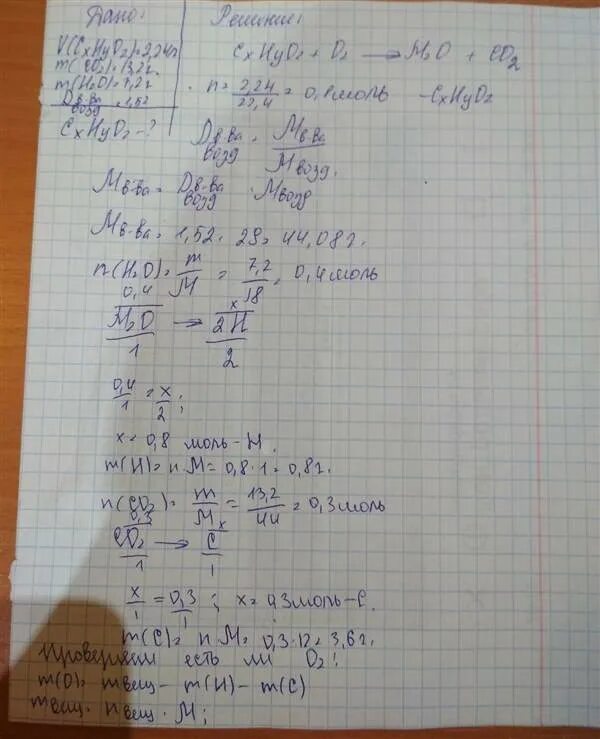 Дано:
V(CxHyO2)=2,24л
m(CO2)=13,2г
m(H2O)=7,2г
Dв-ва возд = 1,52
CxHyO2 - ?
Решение:
CxHyO2 + O2 → H2O + CO2
n = 2,24/22,4 = 0,1 моль - CxHyO2
Dв-ва возд = Mв-ва / Mвозд.
Mв-ва = Dв-ва возд · Mвозд
Mв-ва = 1,52 · 29 = 44,08 г.
n(H2O) = m/M = 7,2/18 = 0,4 моль
0,4 x
H2O → 2H
1 2
0,4/1 = x/2;
x = 0,8 моль - H.
m(H) = n·M = 0,8 · 1 = 0,8 г.
n(CO2) = m/M = 13,2/44 = 0,3 моль
0,3 x
CO2 → C
1 1
x/1 = 0,3/1; x = 0,3 моль - C.
m(C) = n·M = 0,3·12 = 3,6 г.
Проверяем есть ли O2:
m(O) = mвещ - m(H) - m(C)
mвещ = nвещ · M;